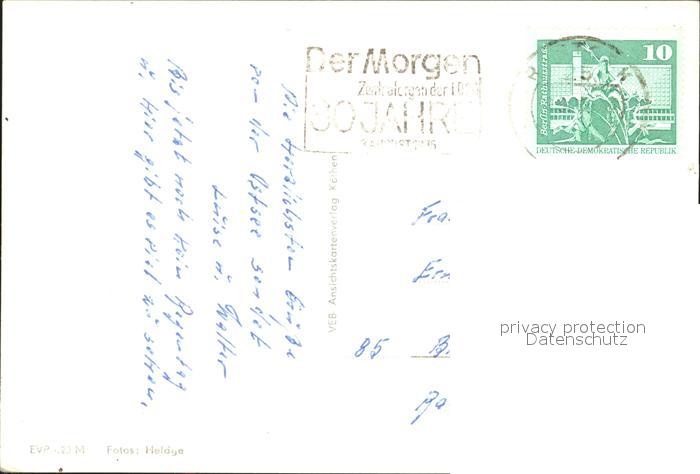 Die herzlichsten Grüße
von der Ostsee sendet
Luise u. Walter
Bis jetzt noch kein Regentag
u. hier gibt es viel zu sehen.
Der Morgen
Zentralorgan der LDPD
30 JAHRE
3. AUGUST 1975
10
Berlin, Rathausstraße
DEUTSCHE DEMOKRATISCHE REPUBLIK
VEB Ansichtskartenverlag Köthen
85
privacy protection
Datenschutz
EVP -,20 M Fotos: Heldge